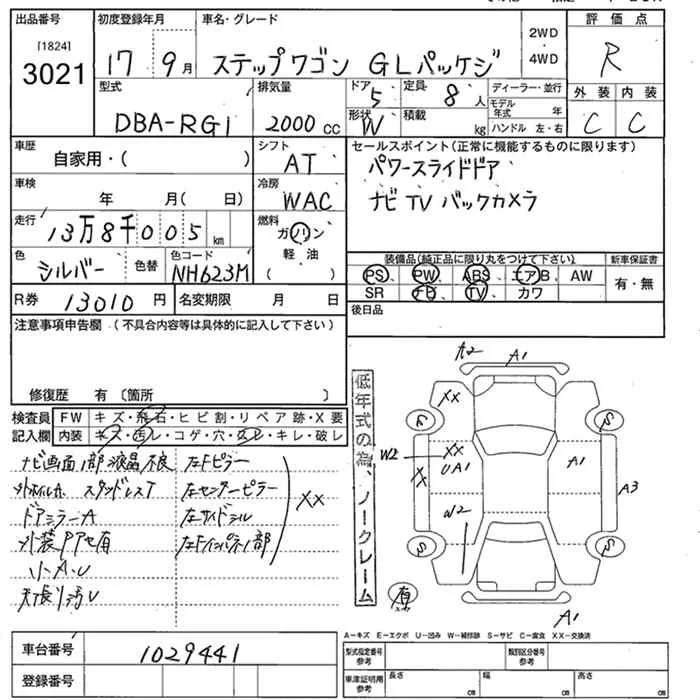 出品番号 初度登録年月 車名・グレード 2WD 評価点
[1824]
3021 17 9月 ステップワゴン GLパッケジ ・4WD R
型式 排気量 ドア 5 定員 8人 ディーラー・並行 外装 内装
DBA-RG1 2000cc 形状 W 積載 kg モデル年式 年 ハンドル 左・右 C C
車歴 自家用・( ) シフト AT セールスポイント(正常に機能するものに限ります)
パワースライドドア
車検 年 月( 日) 冷房 WAC ナビ TV バックカメラ
走行 13万8千005km 燃料 ガソリン
軽油
( )
色 シルバー 色替 色コード NH623M
装備品(純正品に限り丸をつけて下さい) 新車保証書
PS PW ABS エアB AW 有・無
SR ナビ TV カワ
R券 13010円 名変期限 月 日 後日品
注意事項申告欄(不具合内容等は具体的に記入して下さい)
修復歴 有〔箇所 〕
検査員 FW キズ・飛石・ヒビ割・リペア跡・X要
記入欄 内装 キズ・汚レ・コゲ・穴・スレ・キレ・破レ
ナビ画面1部液晶不良 左Fピラー
左センターピラー XX
ドアミラーA 左サイドシル
小A・U
低年式の為、ノークレーム
A2 A1
XX
S S
W2 XX UA1 A1
XX A3
W2
S S
有
A1
A-キズ E-エクボ U-凹み W-補修跡 S-サビ C-腐食 XX-交換済
車台番号 1029441 型式指定番号 参考 類別区分番号 参考
登録番号 車庫証明用 参考 長さ cm 幅 cm 高さ cm